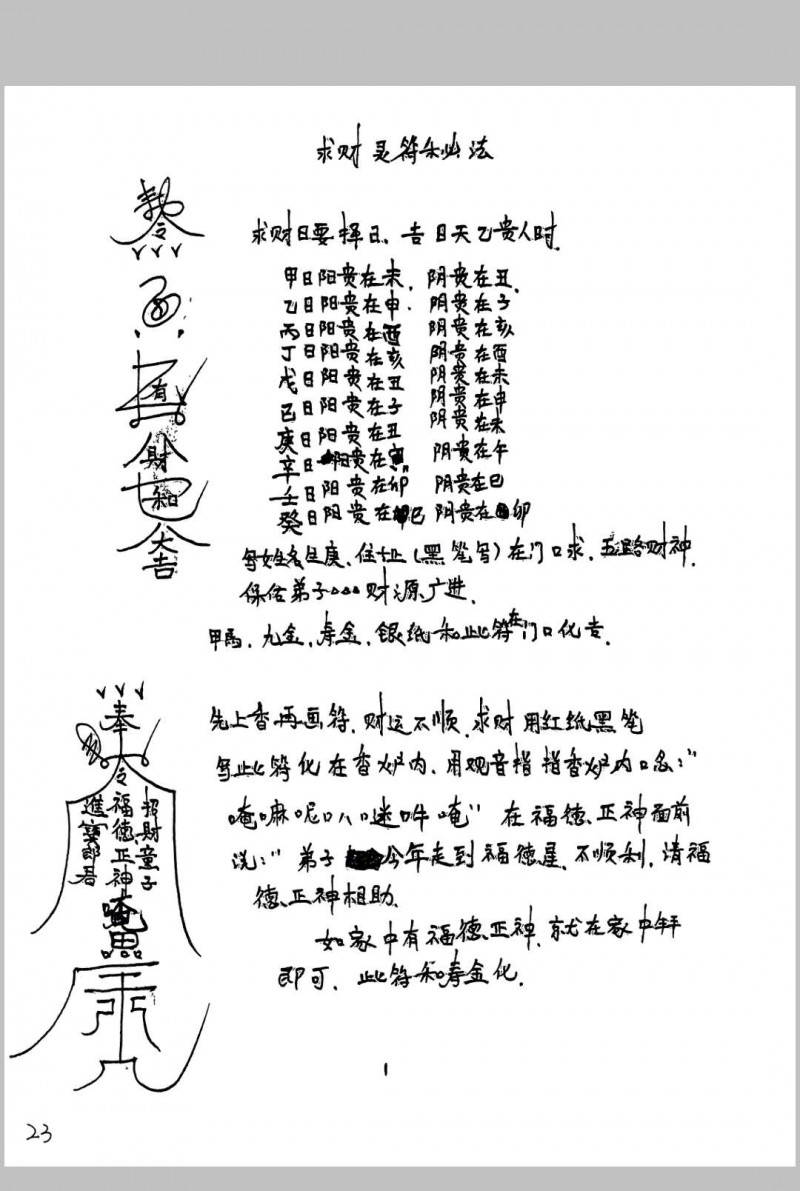 求财灵符和此法
求财日要择日、吉日天乙贵人时.
甲日阳贵在未. 阴贵在丑.
乙日阳贵在申. 阴贵在子
丙日阳贵在酉 阴贵在亥
丁日阳贵在亥 阴贵在酉
戊日阳贵在丑 阴贵在未
己日阳贵在子 阴贵在申
庚日阳贵在丑 阴贵在未
辛日阳贵在寅 阴贵在午
壬日阳贵在卯 阴贵在巳
癸日阳贵在巳 阴贵在卯
写姓名生庚、住址(黑笔写)在门口求,五路财神.
保佑弟子△△△财源广进.
甲馬、九金、寿金、银纸和此符在门口化吉.
有
財
和
大吉
先上香再画符.财运不顺.求财用红纸黑笔
写此符化在香炉内、用观音指指香炉内口念:"
唵嘛呢叭迷吽唵" 在福德正神面前
说:"弟子今年走到福德星、不顺利,请福
德正神相助.
如家中有福德正神、就在家中拜
即可、此符和寿金化.
奉
令
福德正神
招財童子
進寶郎君
唵
1
23